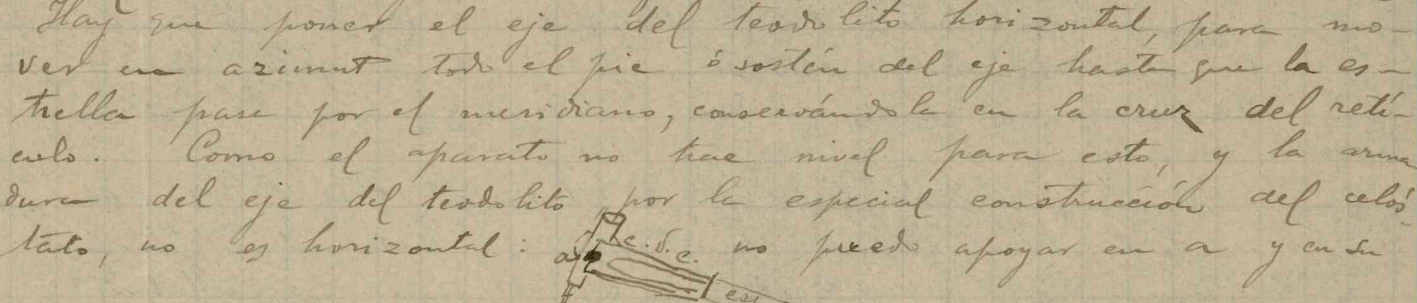 Hay que poner el eje del teodolito horizontal, para mo-
ver en azimut todo el pie ó sostén del eje hasta que la es-
trella pase por el meridiano, conservándola en la cruz del retí-
culo. Como el aparato no trae nivel para esto, y la arma
dura del eje del teodolito por la especial construcción del celós-
tato, no es horizontal: a c. d. e. no puedo apoyar en a y en su